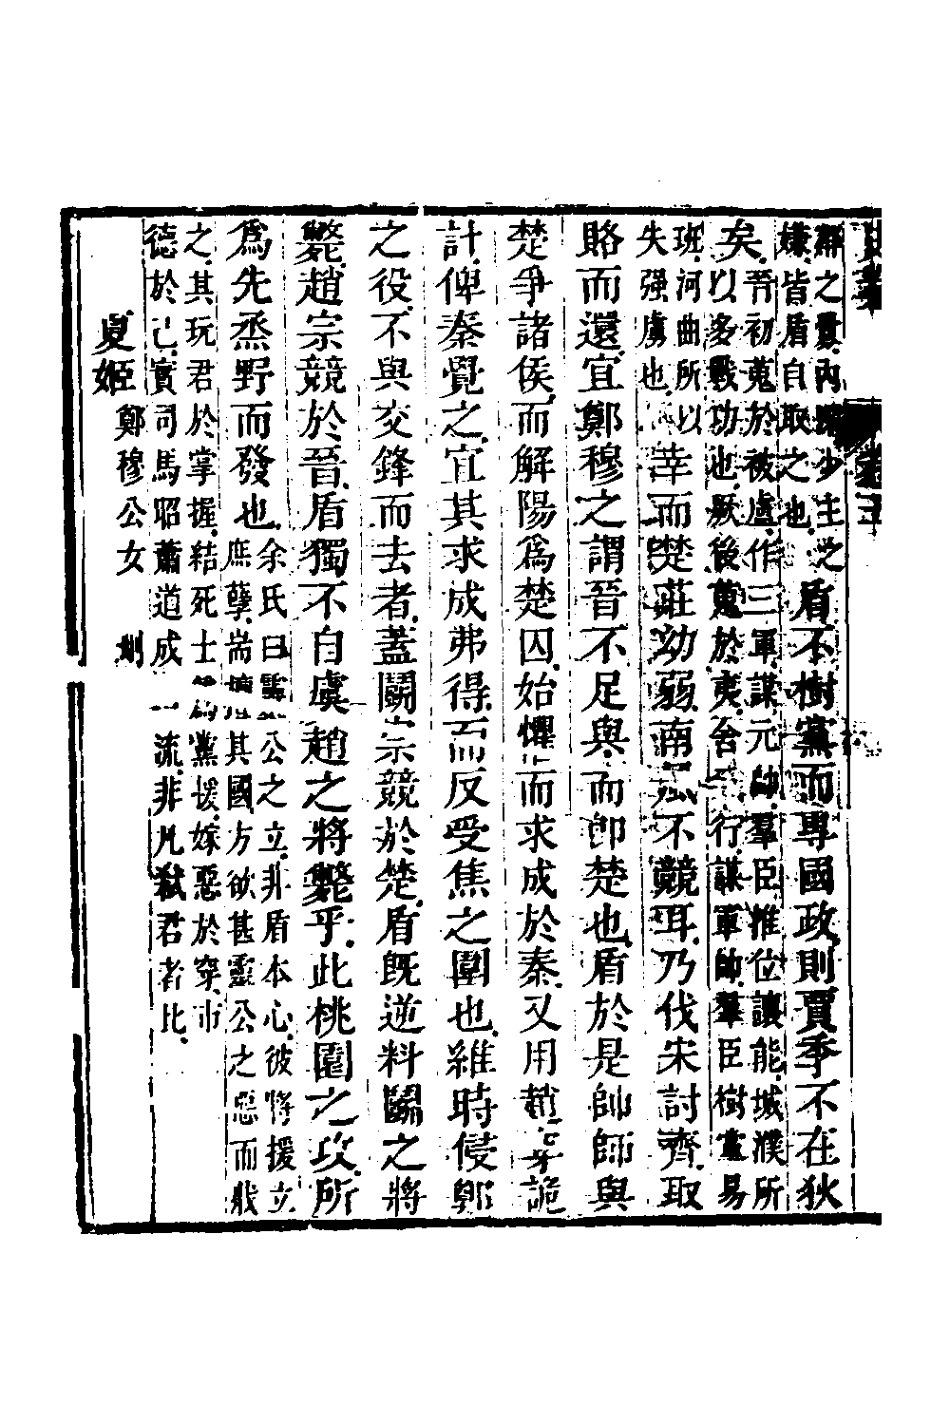 鄰之釁內
少主之
嫌皆盾自取之也
盾不樹黨而專國政則賈季不在狄
矣
晉初蒐於被廬作三軍謀元帥羣臣推位讓能城濮所
以多戰功也厥後蒐於夷舍
行謀軍帥羣臣樹黨易
班河曲所以
失强虜也
幸而楚莊幼弱南風不競耳乃伐宋討齊取
賂而還宜鄭穆之謂晉不足與而卽楚也盾於是帥師與
楚爭諸侯而解陽爲楚囚始懼而求成於秦又用趙穿詭
計俾秦覺之宜其求成弗得而反受焦之圍也維時侵鄭
之役不與交鋒而去者蓋鬭宗競於楚盾旣逆料鬭之將
斃趙宗競於晉盾獨不自虞趙之將斃乎此桃園之攻所
爲先烝野而發也
余氏曰靈公之立非盾本心彼將援立
庶孽耑擅其國方欲甚靈公之惡而戕
之其玩君於掌握結死士爲黨援嫁惡於穿市
德於己實司馬昭蕭道成一流非凡弑君者比
夏姬
鄭穆公女
刪